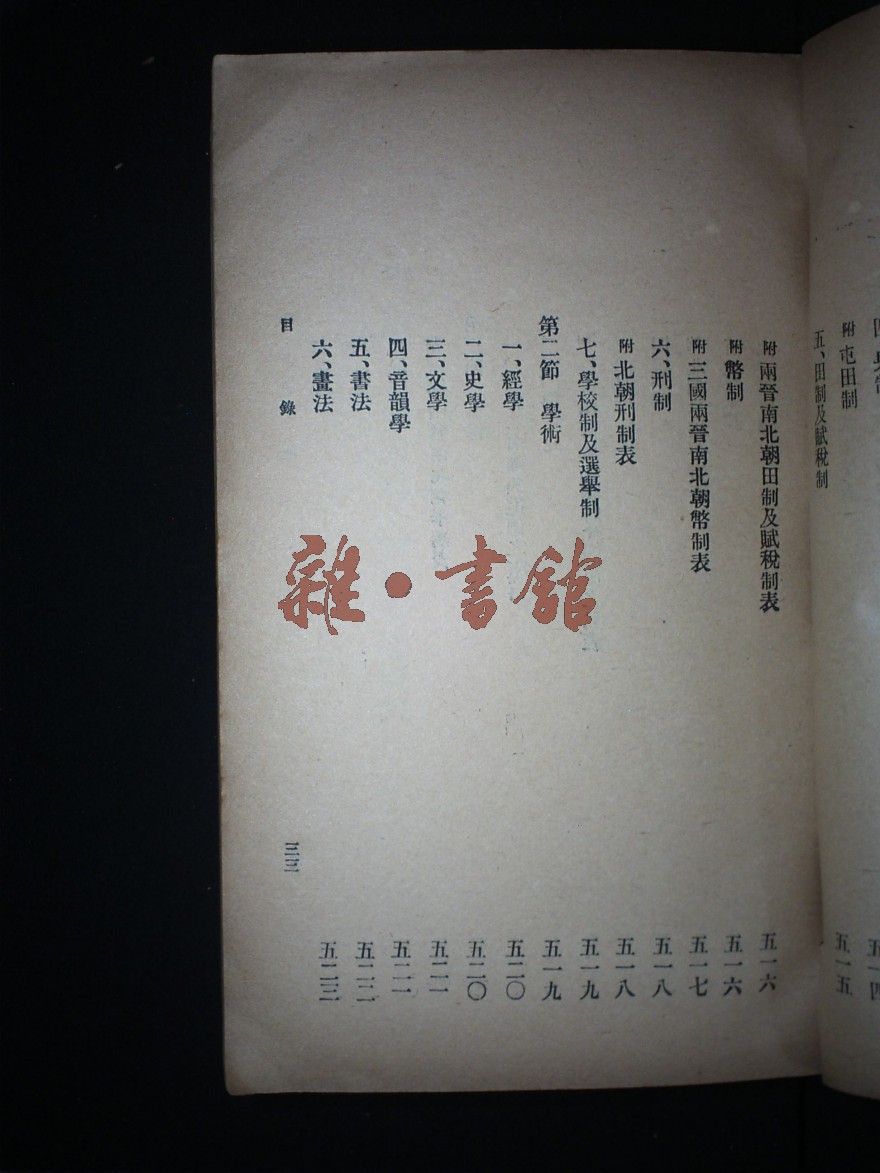 五、田制及賦稅制 五一五
附 屯田制
附 兩晉南北朝田制及賦稅制表 五一六
附 幣制 五一六
附 三國兩晉南北朝幣制表 五一七
六、刑制 五一八
附 北朝刑制表 五一八
七、學校制及選舉制 五一九
第二節 學術 五一九
一、經學 五二〇
二、史學 五二〇
三、文學 五二一
四、音韻學 五二一
五、書法 五二二
六、畫法 五二三
目錄 三三
雜·書舘